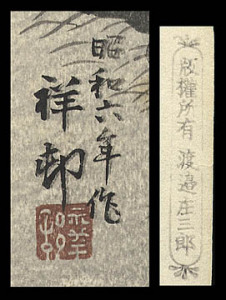 昭和六年作
祥邨
版權所有 渡邊庄三郎